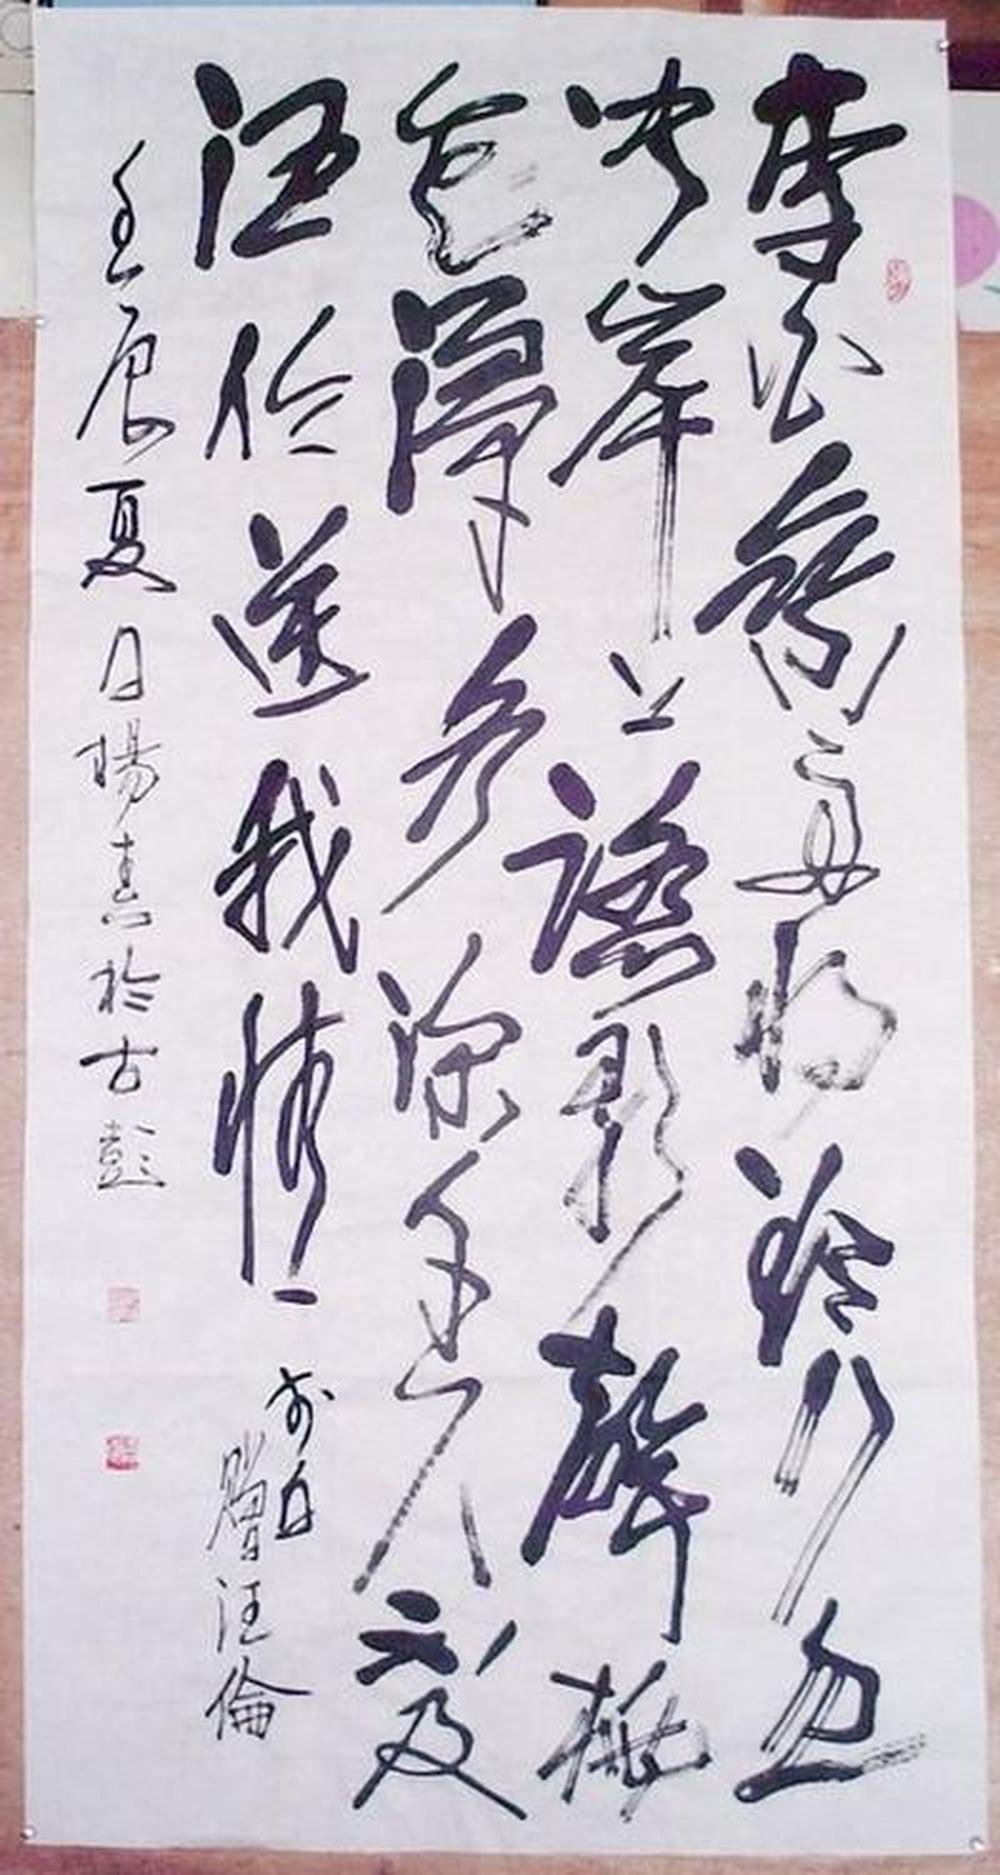 李白乘舟將欲行忽
聞岸上踏歌聲桃
花潭水深千尺不及
汪倫送我情
李白
贈汪倫
壬辰夏日楊喜於古彭